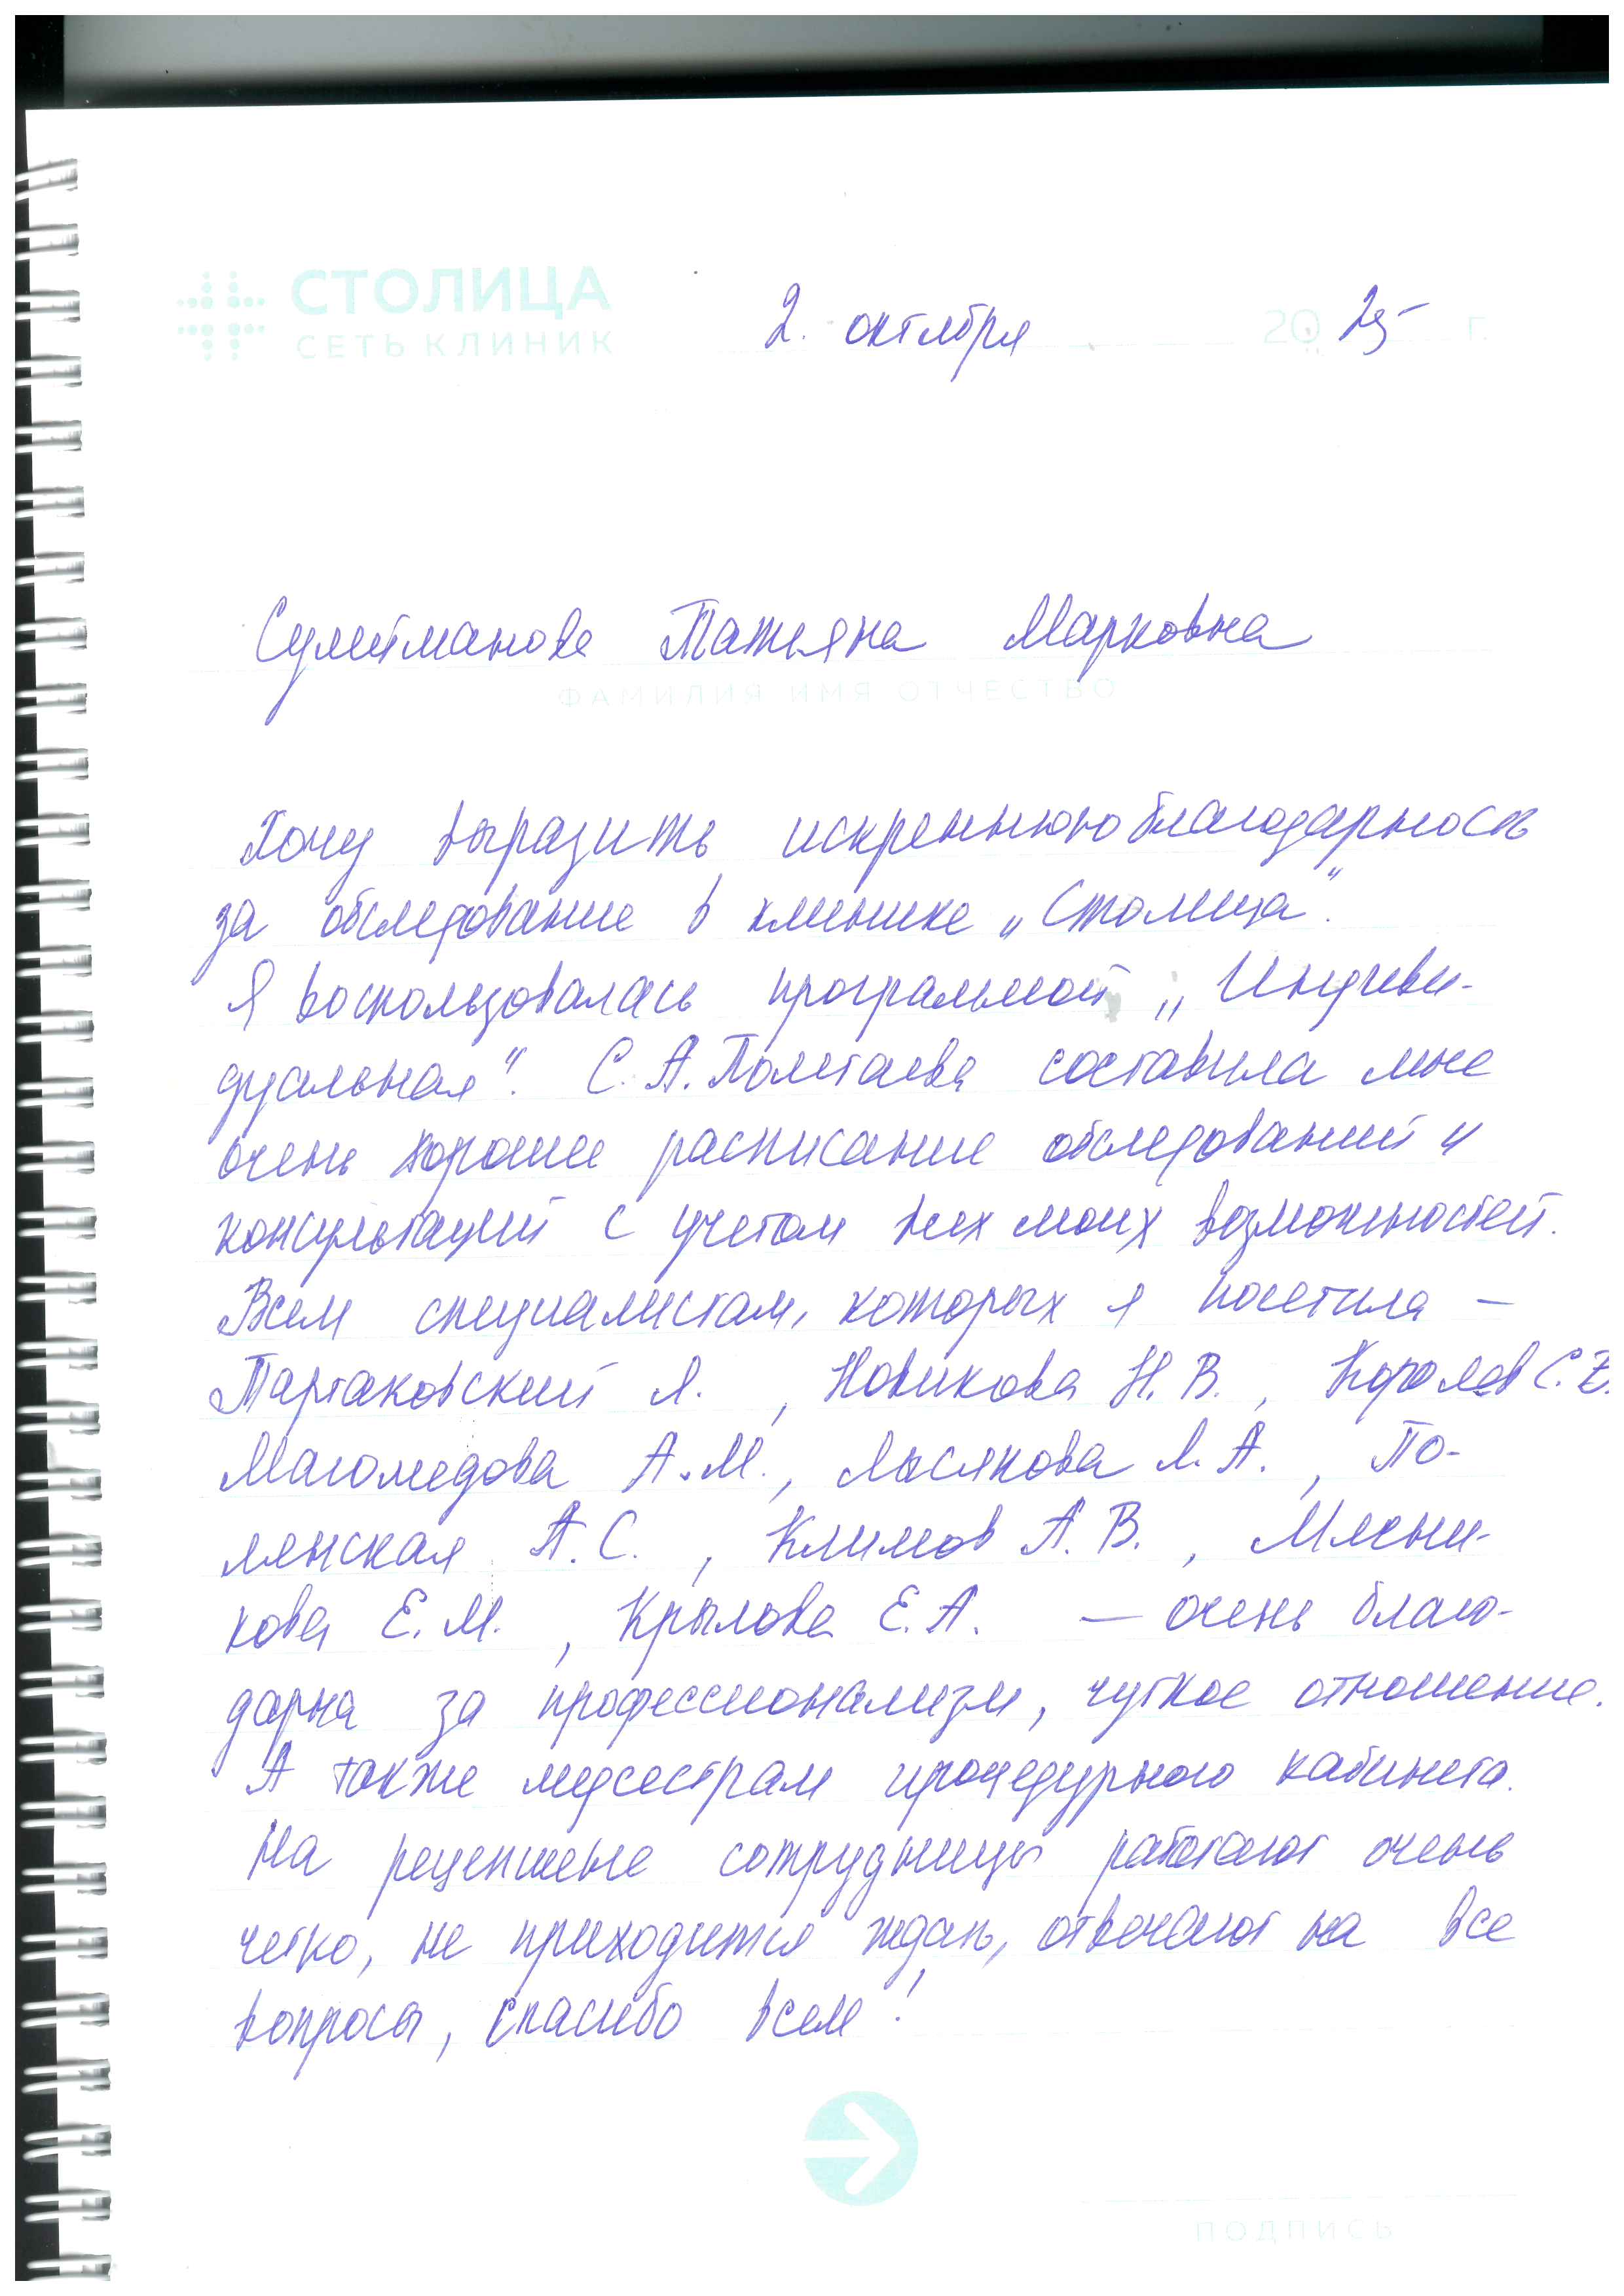 СТОЛИЦА
СЕТЬ КЛИНИК
2. октября 2025 г.
Сулейманова Татьяна Марковна
ФАМИЛИЯ ИМЯ ОТЧЕСТВО
Хочу выразить искреннюю благодарность
за обследование в клинике „Столица".
Я воспользовалась программой „Индиви-
дуальная". С. А. Полетаева составила мне
очень хорошее расписание обследований и
консультаций с учетом всех моих возможностей.
Всем специалистам, которых я посетила —
Партаковский Л. , Новикова Н. В. , Королев С. Е.
Магомедова А. М. , Лысякова Л. А. , По-
лянская А. С. , Климов А. В. , Мясни-
кова Е. М. , Крылова Е. А. — очень благо-
дарна за профессионализм, чуткое отношение.
А также медсестрам процедурного кабинета.
На рецепшене сотрудницы работают очень
четко, не приходится ждать, отвечают на все
вопросы, спасибо всем!
ПОДПИСЬ